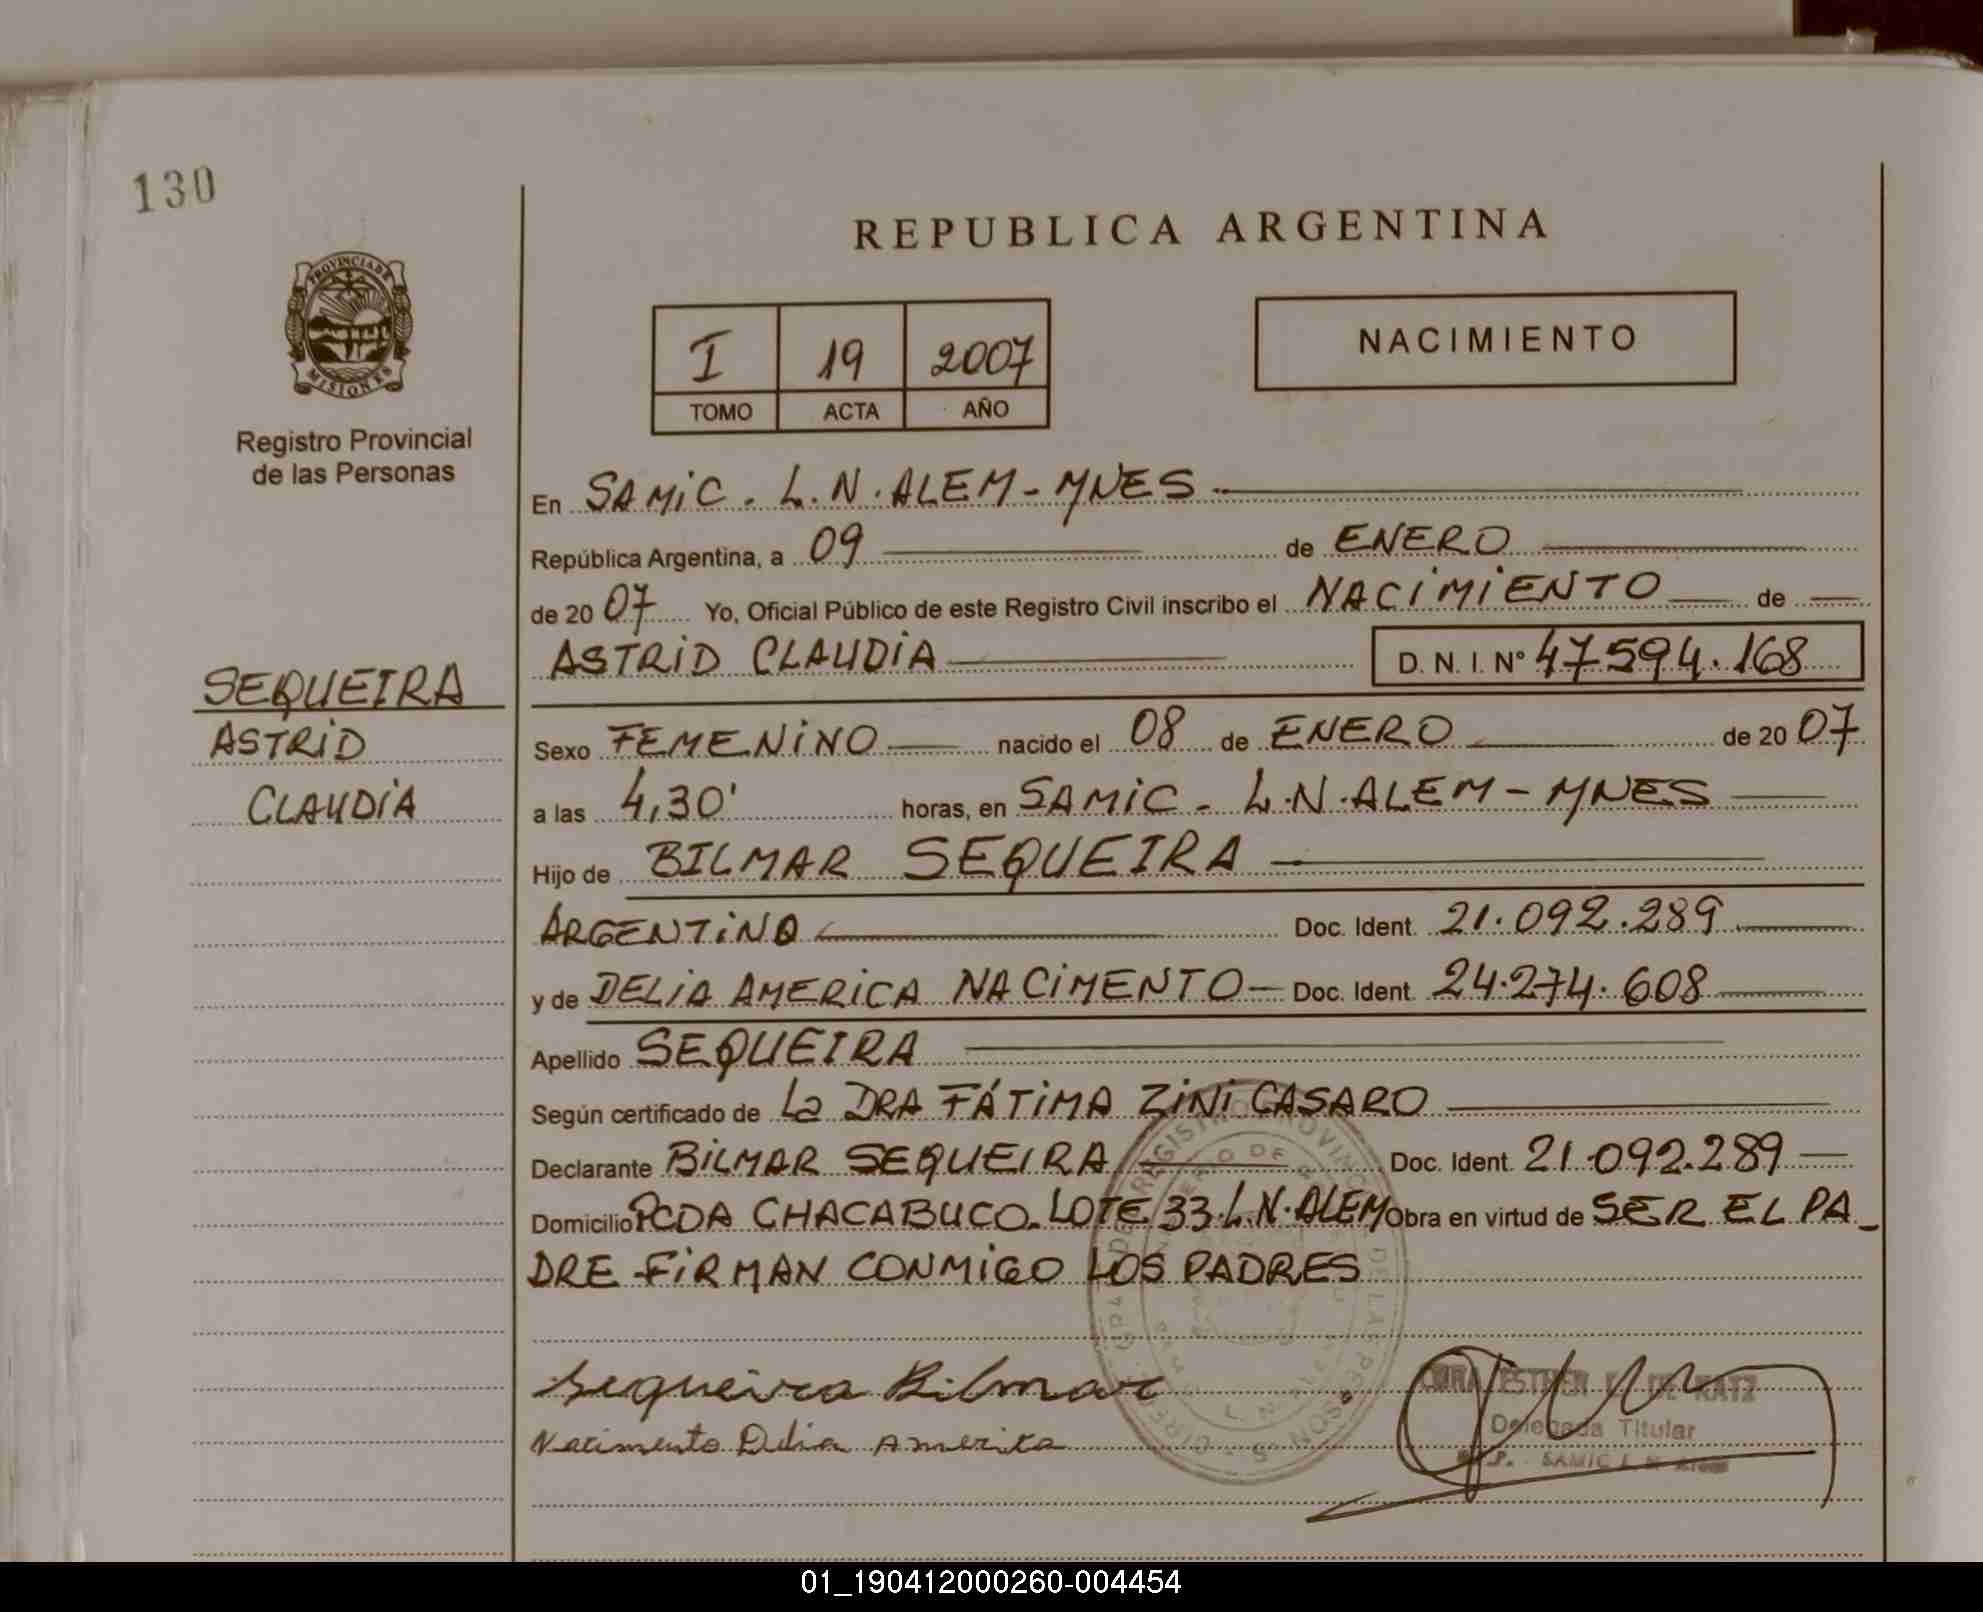 130
REPUBLICA ARGENTINA
PROVINCIA DE
MISIONES
Registro Provincial
de las Personas
I 19 2007
TOMO ACTA AÑO
NACIMIENTO
En SAMiC. L.N.ALEM-MNES
República Argentina, a 09 de ENERO
de 20 07 Yo, Oficial Público de este Registro Civil inscribo el NACiMiENTO de
ASTRiD CLAUDiA D. N. I. Nº 47594.168
SEQUEIRA
ASTRiD
CLAUDiA
Sexo FEMENiNO nacido el 08 de ENERO de 20 07
a las 4,30' horas, en SAMiC - L.N.ALEM-MNES
Hijo de BILMAR SEQUEIRA
ARGENTiNO Doc. Ident. 21.092.289
y de DELiA AMERiCA NACiMENTO - Doc. Ident. 24.274.608
Apellido SEQUEIRA
Según certificado de La DRA FÁTiMA ZiNi CASARO
Declarante BiLMAR SEQUEIRA Doc. Ident. 21.092.289
Domicilio PCDA CHACABUCO. LOTE 33.L.N.ALEM Obra en virtud de SER EL PA_
DRE FiRMAN CONMiGO LOS PADRES
Sequeira Bilmar
Nacimento Delia America
ESTHER DE KATZ
Delegada Titular
SAMIC L N
01_190412000260-004454